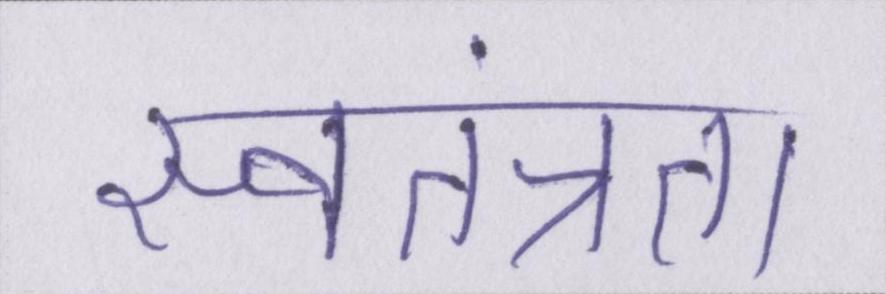 स्वतंत्रता